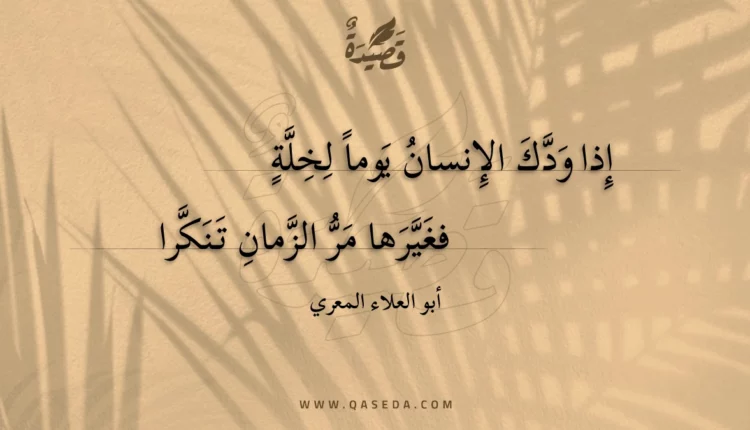 قَصِيْدَةٌ
إِذا وَدَّكَ الإِنسانُ يَوماً لِخِلَّةٍ
فغَيَّرَها مَرُّ الزَّمانِ تَنَكَّرا
أبو العلاء المعري
WWW.QASEDA.COM